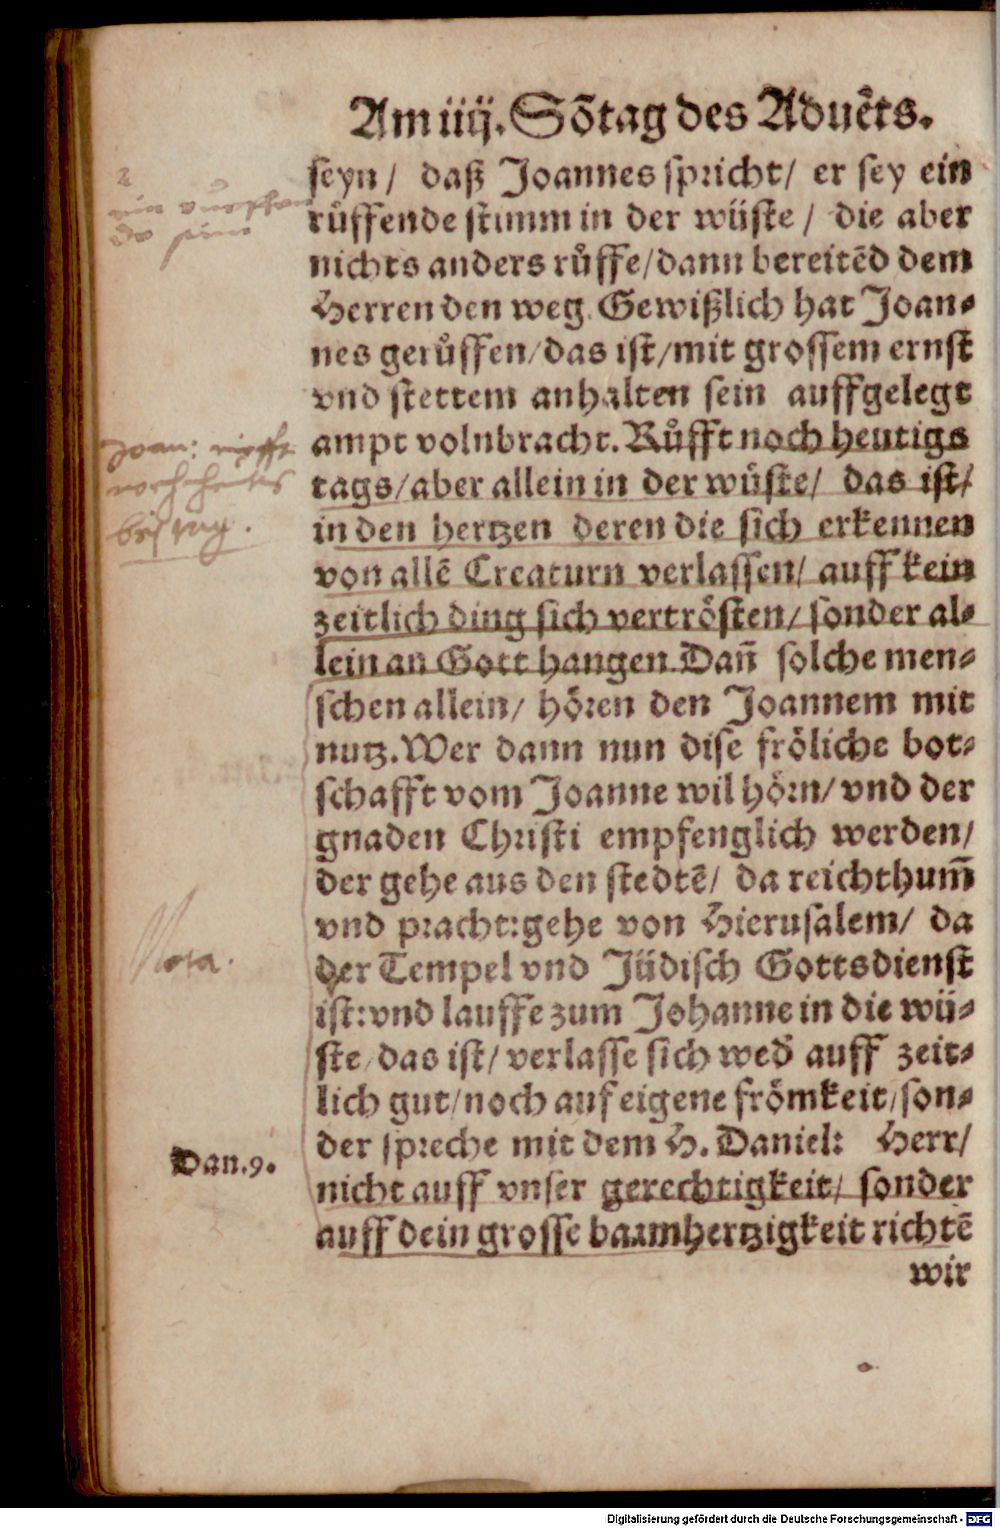 Am iiij. Sõtag des Aduẽts.
seyn / daß Joannes spricht / er sey ein
růffende stimm in der wüste / die aber
nichts anders růffe / dann bereitẽd dem
Herren den weg. Gewißlich hat Joan⸗
nes gerůffen / das ist / mit grossem ernst
vnd stettem anhalten sein auffgelegt
ampt volnbracht. Růfft noch heutigs
tags / aber allein in der wüste / das ist /
in den hertzen deren die sich erkennen
von allẽ Creaturn verlassen / auff kein
zeitlich ding sich vertrösten / sonder al⸗
lein an Gott hangen. Dañ solche men⸗
schen allein / hören den Joannem mit
nutz. Wer dann nun dise fröliche bot⸗
schafft vom Joanne wil hörn / vnd der
gnaden Christi empfenglich werden /
der gehe aus den stedtẽ / da reichthum̃
vnd pracht: gehe von Hierusalem / da
der Tempel vnd Jüdisch Gottsdienst
ist: vnd lauffe zum Johanne in die wü⸗
ste / das ist / verlasse sich wed̃ auff zeit⸗
lich gut / noch auf eigene frömkeit / son⸗
der spreche mit dem H. Daniel: Herr /
nicht auff vnser gerechtigkeit / sonder
auff dein grosse barmhertzigkeit richtẽ
wir
2
Joan: rüefft
noch heütigs
Nota.
Dan. 9.
Digitalisierung gefördert durch die Deutsche Forschungsgemeinschaft - DFG